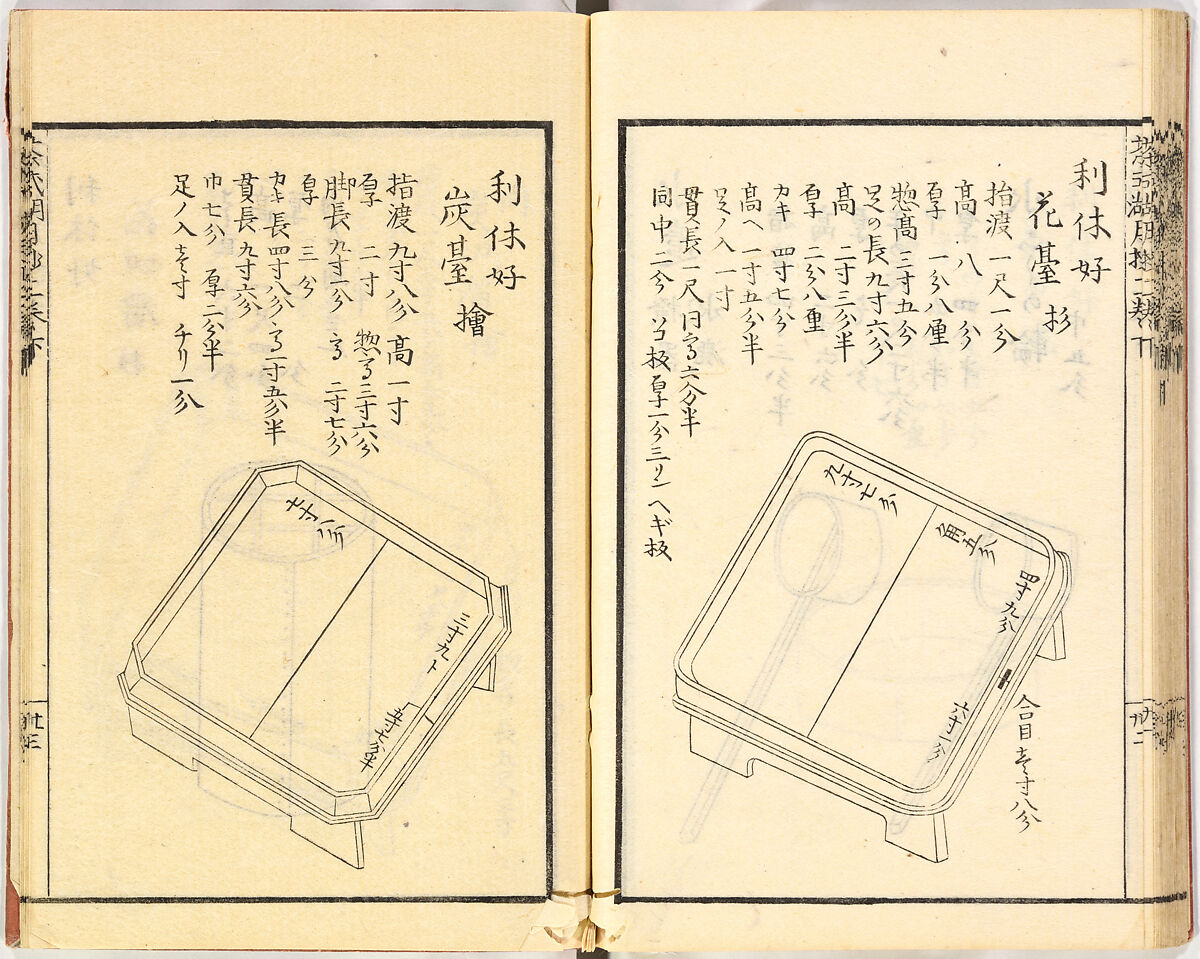 利休好
花臺 杉
指渡一尺一分
高八分
厚一分八厘
惣高三寸五分
足の長九寸六分
高二寸三分半
厚二分八重
カキ四寸七分
高へ一寸五分半
足ノ入一寸
貫長一尺 同高六分半
同中二分 ソコ板厚一分三リン ヘギ板
九寸七分
角五分
四寸九分
六寸一分
合目壱寸八分
利休好
炭臺 檜
指渡九寸八分 高一寸
厚二寸 惣高三寸六分
脚長九寸一分 高二寸七分
厚三分
カキ長四寸八分 高一寸五分半
貫長九寸六分
巾七分 厚二分半
足ノ入壱寸 チリ一分
七寸八分
三寸九ト
五寸七分半
廿三